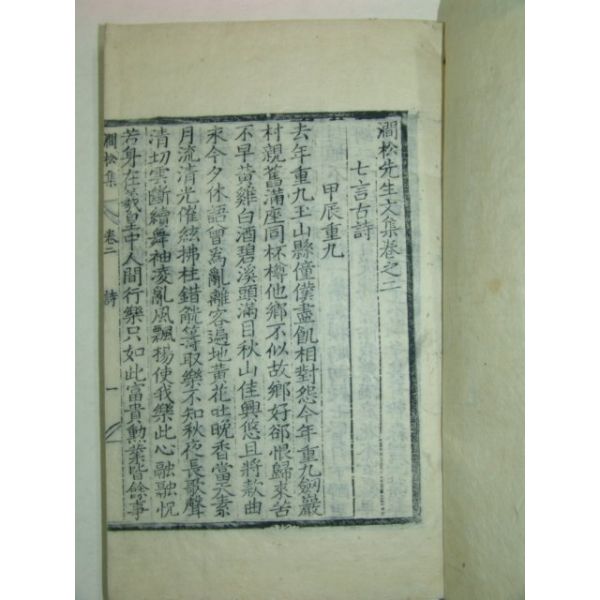 澗松先生文集卷之二
七言古詩
甲辰重九
去年重九玉山縣僮僕盡飢相對怨今年重九劒巖
村親舊滿座同杯樽他鄉不似故鄉好却恨歸來苦
不早黃雞白酒碧溪頭滿目秋山佳興悠且將款曲
永今夕休語曾爲亂離客遍地黃花吐晩香當天素
月流清光催絃拂柱錯觥籌取樂不知秋夜長歌聲
清切雲斷續舞袖凌亂風飄揚使我樂此心融融怳
若身在羲皇中人間行樂只如此富貴勳業皆餘事
澗松集 卷二 詩 一